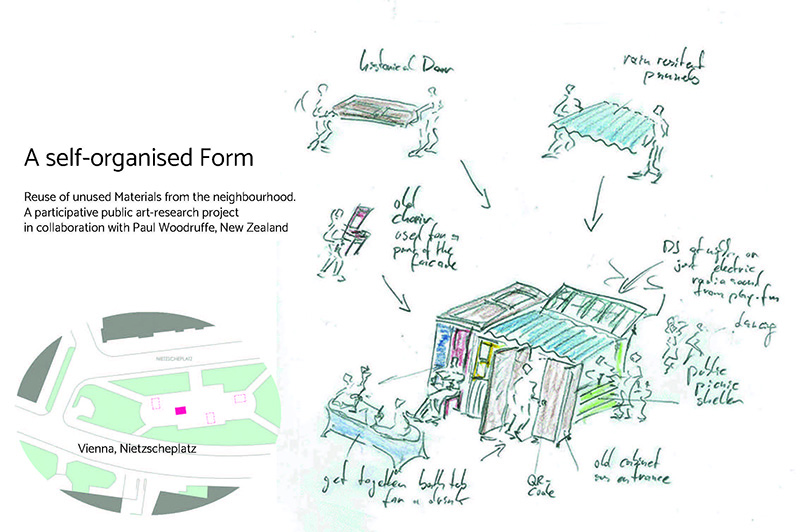 A self-organised Form
Reuse of unused Materials from the neighbourhood.
A participative public art-research project
in collaboration with Paul Woodruffe, New Zealand
NIETZSCHEPLATZ
Vienna, Nietzscheplatz
historical Door
rain resitent
old
used for a
part of the
DJ at night or
just electric
radio sound
from play.fm
dancing
public
picnic
shelter
get together bath tub
for a drink
QR-
Code
old cabinet
as entrance